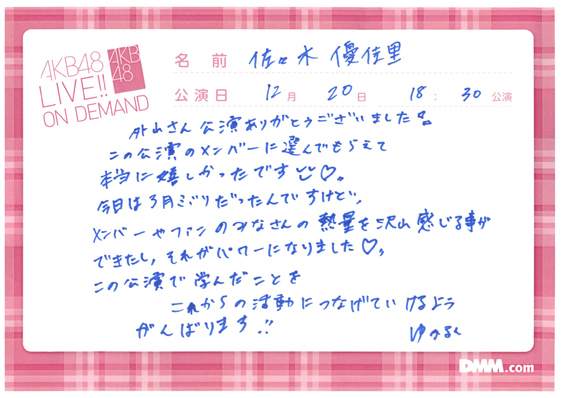 AKB48
LIVE!!
ON DEMAND
AKB
48
名前 佐々木 優佳里
公演日 12月 20日 18:30公演
外山さん公演ありがとうございました
この公演のメンバーに選んでもらえて
本当に嬉しかったです♡。
今日は3月ぶりだったんですけど、
メンバーやファンのみなさんの熱量を沢山感じる事が
できたし、それがパワーになりました♡。
この公演で学んだことを
これからの活動につなげていけるよう
がんばります!!
DMM.com